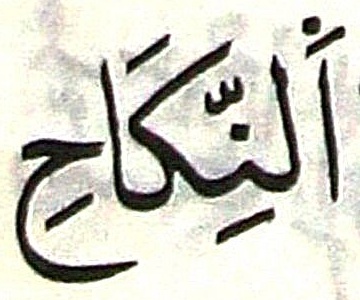 اَلنِّكَاحِ